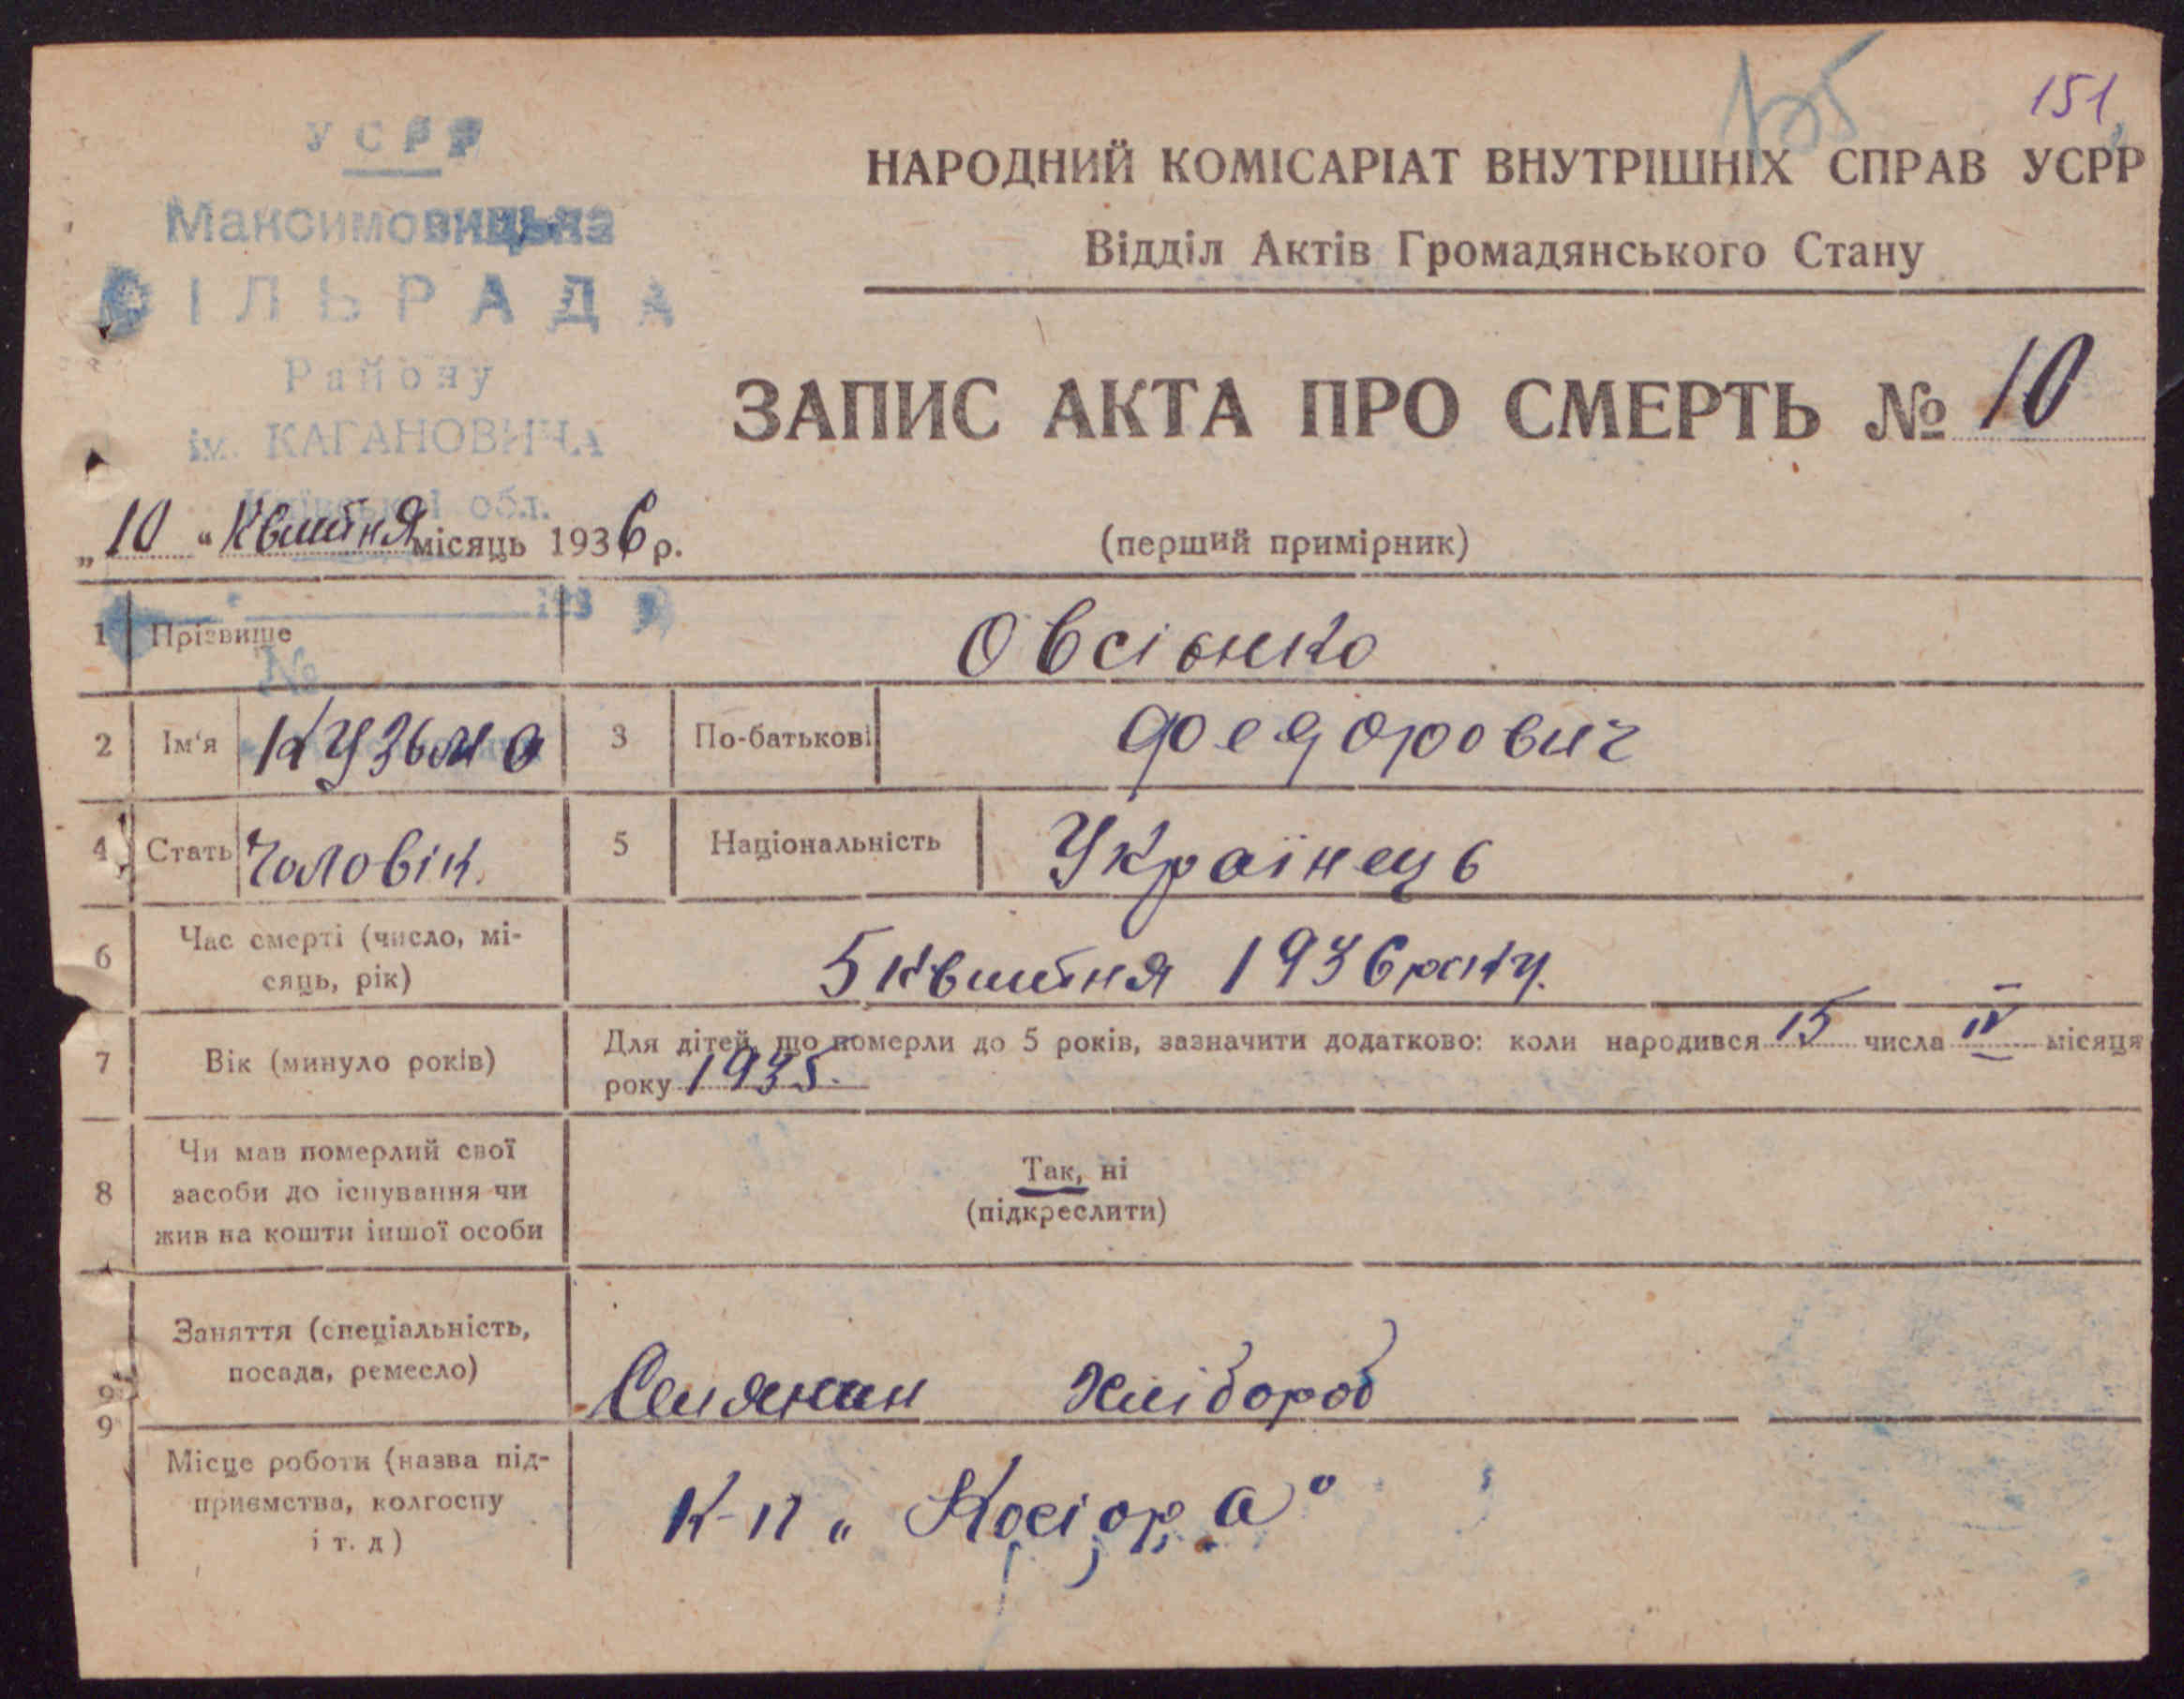 151
УСРР
Максимовицька
СІЛЬРАДА
Району
ім. КАГАНОВИЧА
Київської обл.
193
№
НАРОДНИЙ КОМІСАРІАТ ВНУТРІШНІХ СПРАВ УСРР
Відділ Актів Громадянського Стану
ЗАПИС АКТА ПРО СМЕРТЬ № 10
„10“ Квітня місяць 1936 р.
(перший примірник)
1 Прізвище Овсієнко
2 Ім'я Кузьма 3 По-батькові Федорович
4 Стать Чоловік. 5 Національність Українець
6 Час смерті (число, мі-
сяць, рік) 5 квітня 1936 року.
7 Вік (минуло років) Для дітей, що померли до 5 років, зазначити додатково: коли народився 15 числа IV місяця
року 1935.
8 Чи мав померлий свої
засоби до існування чи
жив на кошти іншої особи
Так, ні
(підкреслити)
9 Заняття (спеціальність,
посада, ремесло) Селянин Хлібороб
9 Місце роботи (назва під-
приємства, колгоспу
і т. д) К-п „Косіора“